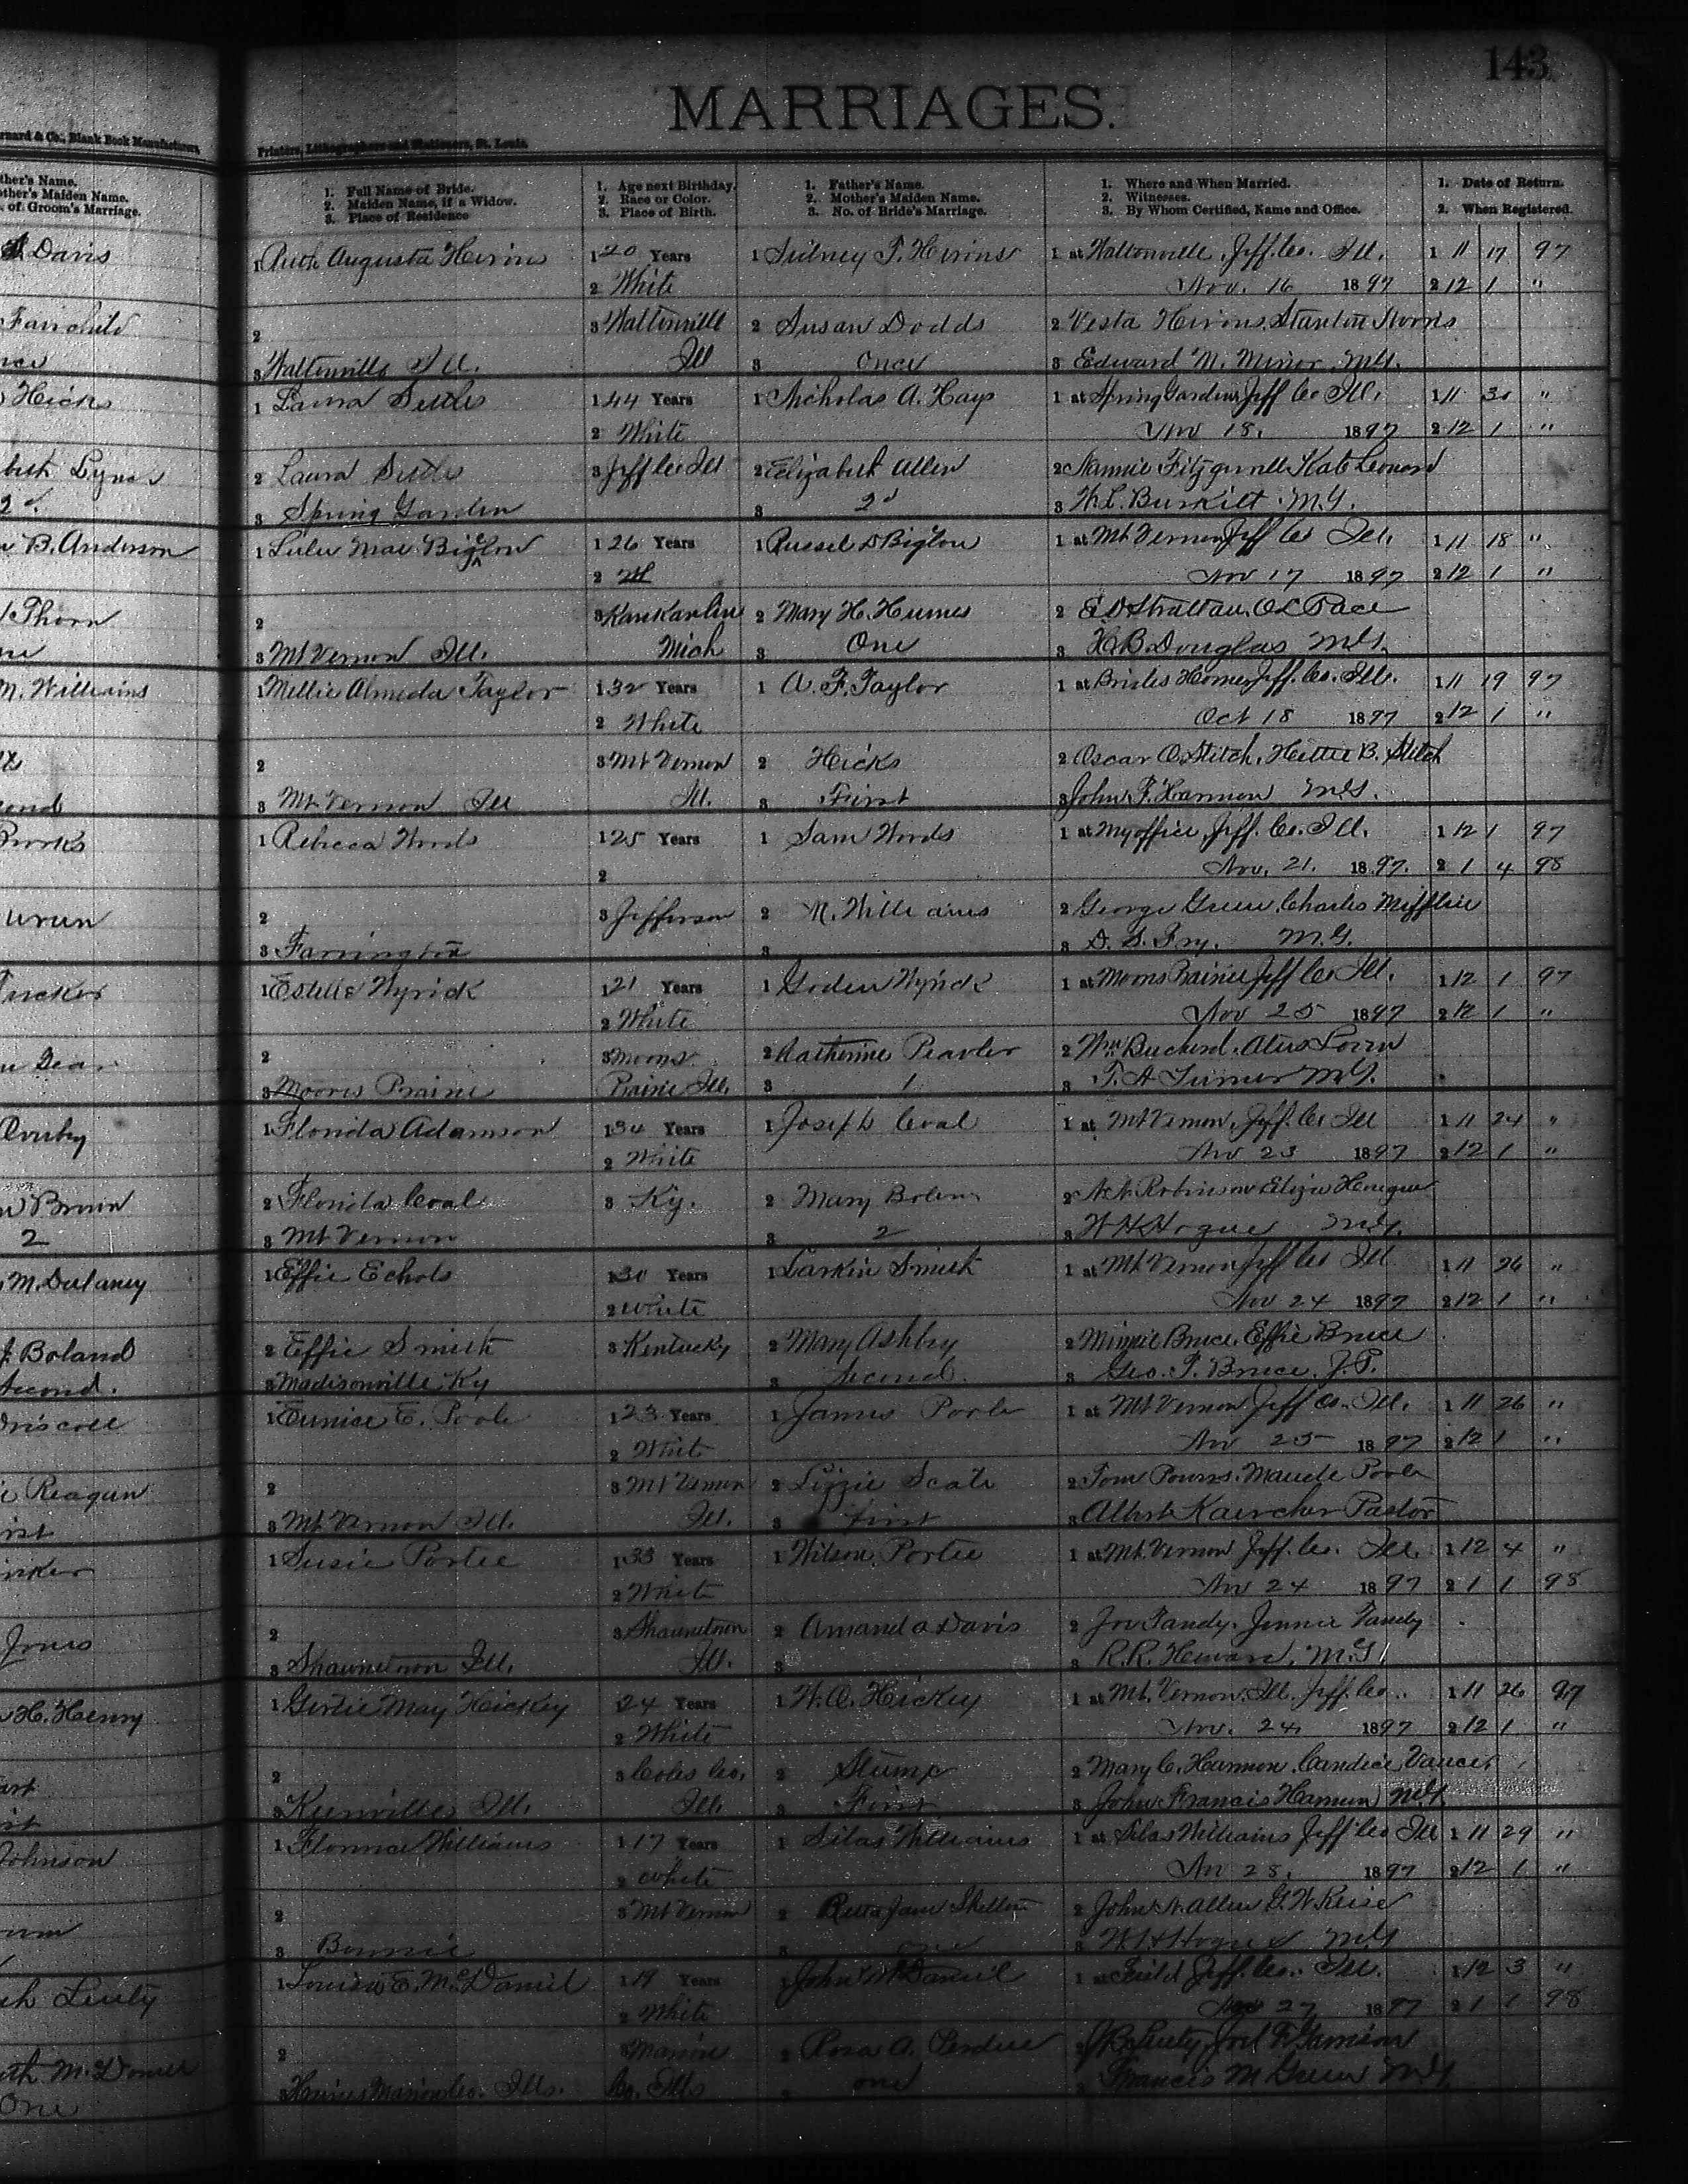 143
MARRIAGES.
Blank Book Manufacturers,
Printers, Lithographers and Stationers, St. Louis.
1. Full Name of Bride.
2. Maiden Name, if a Widow.
3. Place of Residence
1. Age next Birthday.
2. Race or Color.
3. Place of Birth.
1. Father's Name.
2. Mother's Maiden Name.
3. No. of Bride's Marriage.
1. Where and When Married.
2. Witnesses.
3. By Whom Certified, Name and Office.
1. Date of Return.
2. When Registered.
Davis 1 Ruth Augusta Hirons 1 20 Years 1 Sidney T. Hirons 1 at Waltonville, Jeff. Co. Ill. 1 11 17 97
2 White Nov. 16 1897 2 12 1 "
Fairchild 2 3 Waltonville 2 Susan Dodds 2 Vesta Hirons, Stanton Norris
3 Waltonville Ill. Ill 3 Once 3 Edward M. Minor, M.G.
Hicks 1 Laura Settle 1 44 Years 1 Nicholas A. Hays 1 at Spring Garden, Jeff Co Ill. 1 11 30 "
2 White Nov 18. 1897 2 12 1 "
2 Laura Settle 3 Jeff Co Ill 2 Elizabeth Allen 2 Nannie Fitzgerrell Kate Leonard
2d. 3 Spring Garden 3 2d 3 W. L. Burkitt. M.G.
B. Anderson 1 Lulu Mae Bigelow 1 26 Years 1 Russel D Biglow 1 at Mt Vernon Jeff Co Ill. 1 11 18 "
2 W Nov 17 1897 2 12 1 "
Thorn 2 3 2 Mary H. Humes 2 E D Strattan, O L Pace
3 Mt Vernon Ill. Mich 3 One 3 H B Douglas M.G.
M. Williams 1 Nellie Almeda Taylor 1 32 Years 1 A. F. Taylor 1 at Brides Home, Jeff. Co. Ill. 1 11 19 97
2 White Oct 18 1897 2 12 1 "
2 3 Mt Vernon 2 Hicks 2 Oscar O. Stitch, Hettie B. Stitch
3 Mt Vernon Ill Ill. 3 First 3 John F. Harmon M.G.
1 Rebecca Woods 1 25 Years 1 Sam Woods 1 at My office, Jeff. Co. Ill. 1 12 1 97
2 Nov. 21. 1897. 2 1 4 98
2 3 Jefferson 2 M. Williams 2 George Green, Charles Mifflin
3 Farrington 3 3 D. S. Fry. M.G.
1 Estelle Wyrick 1 21 Years 1 Goden Wyrick 1 at Moores Prairie Jeff Co Ill. 1 12 1 97
2 White Nov 25 1897 2 12 1 "
2 3 Moores 2 Katherine Peavler 2 Wm
3 Moores Prairie Prairie Ill. 3 1 3 T. A Turner M.G.
1 Florida Adamson 1 34 Years 1 Joseph Coval 1 at Mt Vernon, Jeff. Co Ill 1 11 24 "
2 White Nov 23 1897 2 12 1 "
Brown 2 Florida Coval 3 Ky. 2 Mary Bolen 2 N. N. Robinson Eliza
2 3 Mt Vernon 3 2 3 W H Hogue M.G.
M. Dulaney 1 Effie Echols 1 30 Years 1 Larkin Smith 1 at Mt Vernon Jeff Co Ill 1 11 26 "
2 White Nov 24 1897 2 12 1 "
Boland 2 Effie Smith 3 Kentucky 2 Mary Ashby 2 Minnie Bruce, Effie Bruce
Second. 3 Madisonville, Ky 3 Second. 3 Geo. T. Bruce, J.P.
1 Eunice E. Poole 1 23 Years 1 James Poole 1 at Mt Vernon Jeff Co. Ill. 1 11 26 "
2 White Nov 25 1897 2 12 1 "
Reagan 2 3 Mt Vernon 2 Lizzie Scate 2 Tom Powers, Maude Poole
3 Mt Vernon Ill. Ill. 3 First 3 Albert Kaercher Pastor
1 Susie Portee 1 33 Years 1 Wilson Portee 1 at Mt. Vernon Jeff. Co. Ill. 1 12 4 "
2 White Nov 24 1897 2 1 1 98
Jones 2 3 Shawnetown 2 Amanda Davis 2 Joe Tandy, Jennie Tandy
3 Shawnetown Ill. Ill. 3 3 R. R. M.G.
H. Henry 1 Gertie May Hickey 24 Years 1 W. A. Hickey 1 at Mt. Vernon. Ill. Jeff. Co.. 1 11 26 97
2 White Nov. 24 1897 2 12 1 "
2 3 Coles Co. 2 Stump 2 Mary C. Harmon, Candice Vance.
3 Ill. Ill. 3 First 3 John Francis Harmon M.G.
Johnson 1 Florence Williams 1 17 Years 1 Silas Williams 1 at Silas Williams Jeff Co Ill 1 11 29 "
2 White Nov 28. 1897 2 12 1 "
2 3 Mt Vernon 2 Jane 2 John N. Allen G. W.
3 Bonnie 3 3 W H Hogue M.G.
1 Louisa E. McDaniel 1 19 Years 1 John McDaniel 1 at Field Jeff. Co. Ill. 1 12 3 "
2 White Nov 27 1897 2 1 1 98
2 3 Marion 2 Rosa A. Perdue 2
3 Marion Co. Ills. Co. Ills one Francis M Green M.G.
One